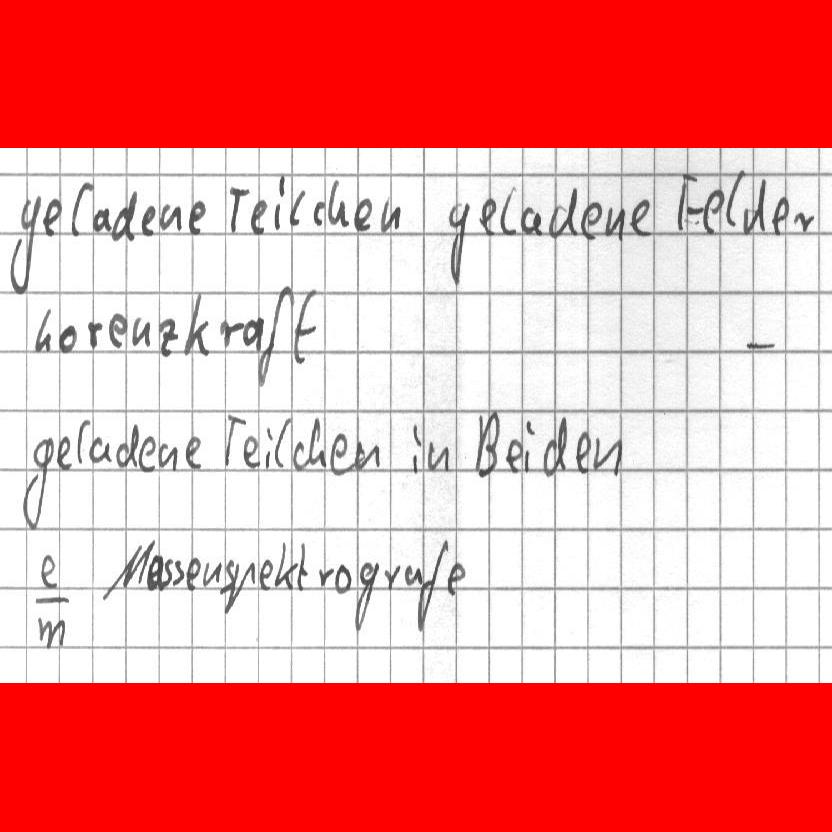 geladene Teilchen geladene Felder
Lorenzkraft –
geladene Teilchen in Beiden
e/m Massenspektrografe